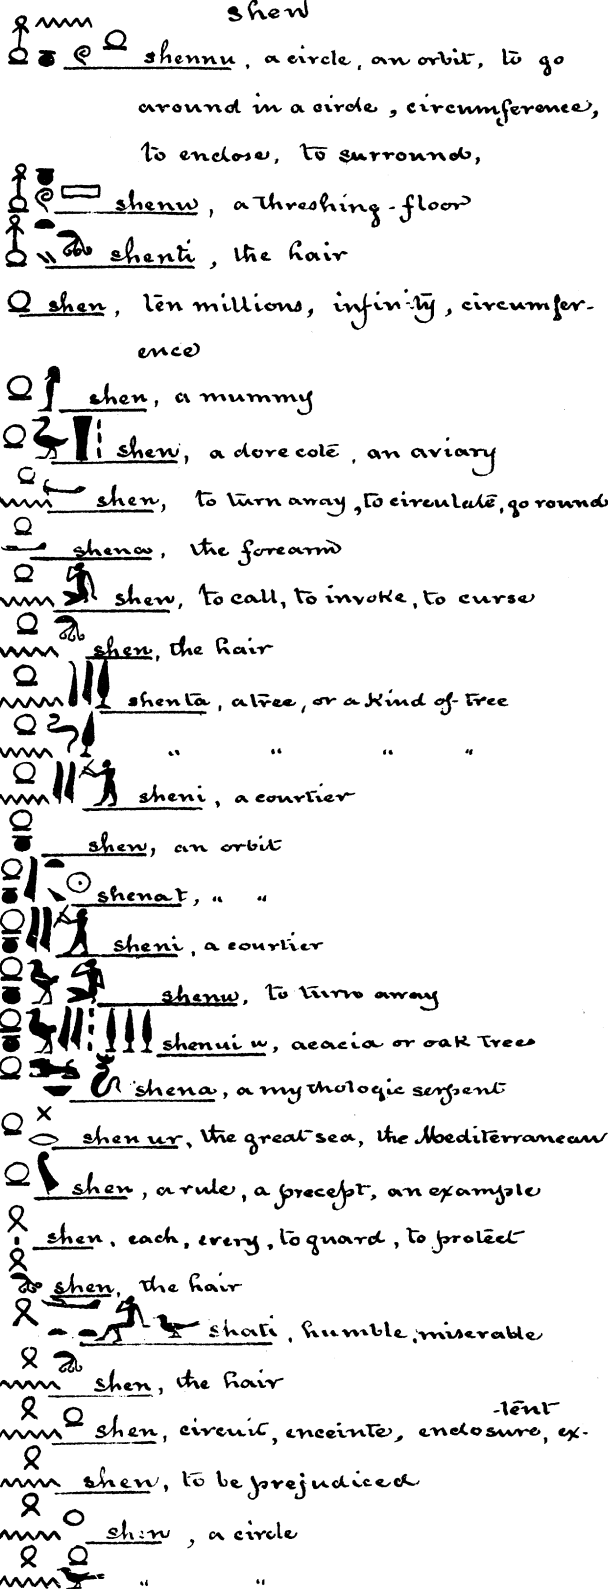 shen
shennu, a circle, an orbit, to go
around in a circle, circumference,
to enclose, to surround,
shenu, a threshing-floor
shenti, the hair
shen, ten millions, infinity, circumfer-
ence
shen, a mummy
shen, a dove cote, an aviary
shen, to turn away, to circulate, go round
shena, the forearm
shen, to call, to invoke, to curse
shen, the hair
shenta, a tree, or a kind of tree
" " " "
sheni, a courtier
shen, an orbit
shenat, " "
sheni, a courtier
shenu, to turn away
shenui u, acacia or oak trees
shena, a mythologic serpent
shen ur, the great sea, the Mediterranean
shen, a rule, a precept, an example
shen, each, every, to guard, to protect
shen, the hair
shati, humble, miserable
shen, the hair
shen, circuit, enceinte, enclosure, ex-
-tent
shen, to be prejudiced
shen, a circle
" "